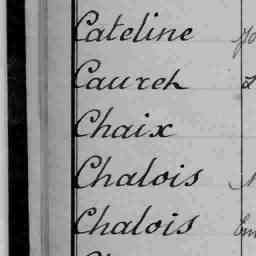 Cateline
Caureh
Chaix
Chalois
Chalois